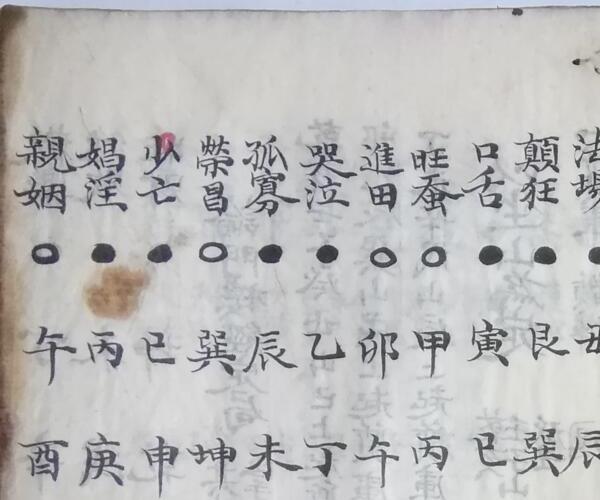 法場 ● 丑 辰
顛狂 ● 艮 巽
口舌 ● 寅 巳
旺蚕 ○ 甲 丙
進田 ○ 卯 午
哭泣 ● 乙 丁
孤寡 ● 辰 未
榮昌 ○ 巽 坤
少亡 ● 巳 申
娼淫 ● 丙 庚
親姻 ○ 午 酉